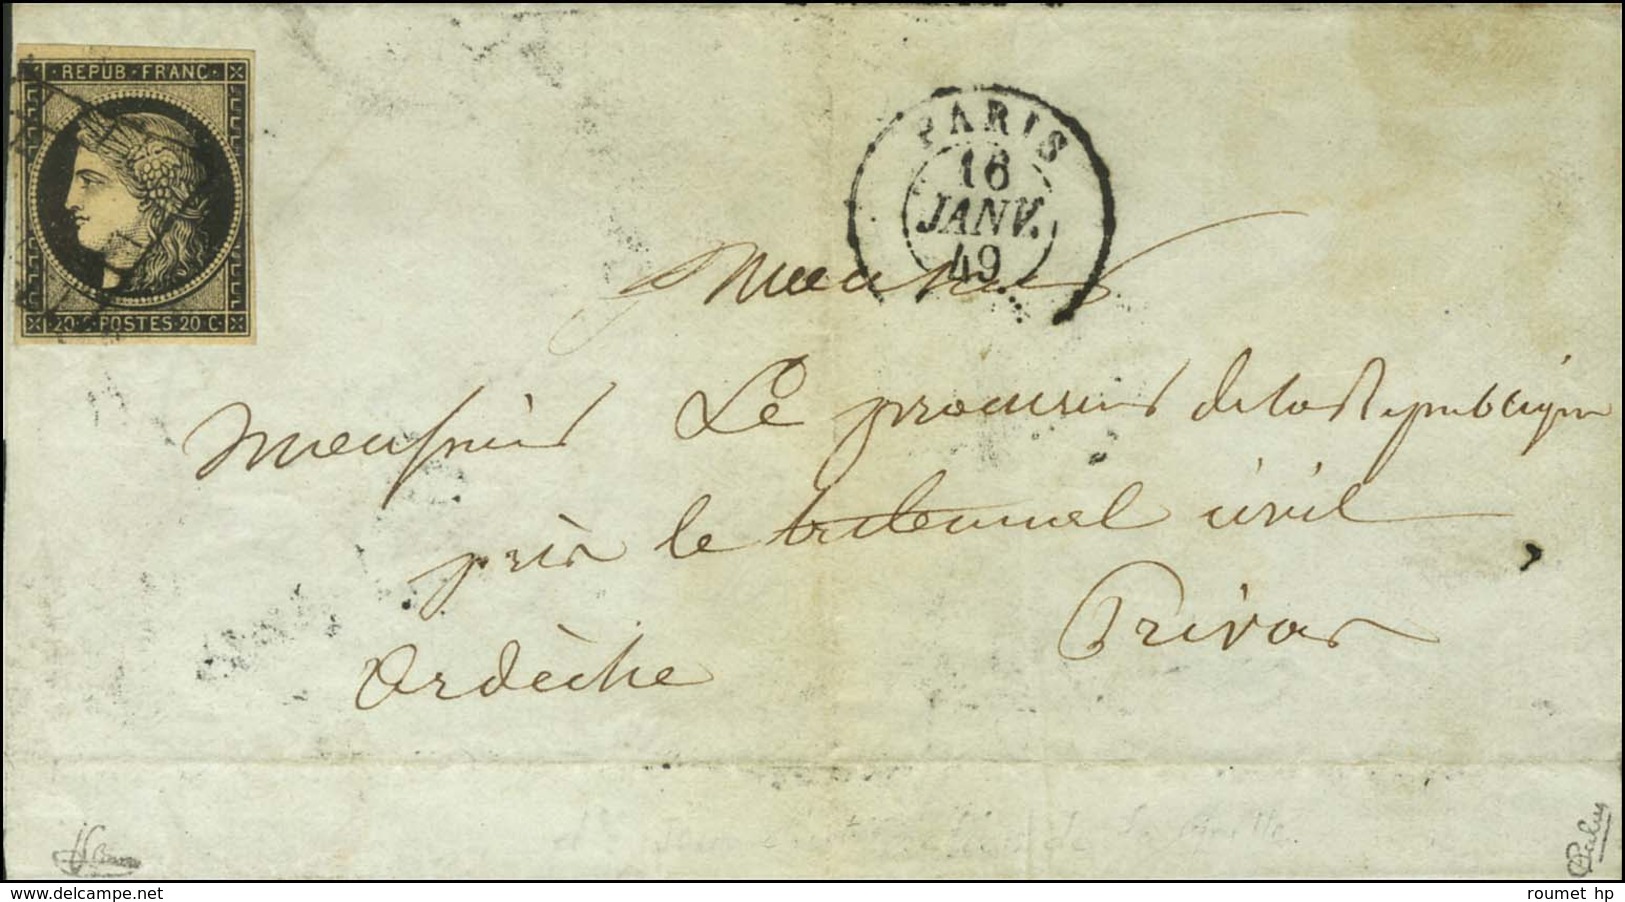 REPUB·FRANC·
20·C·POSTES·20·C·
PARIS
16
JANV.
49
Monsieur
Monsieur Le procureur de la République
près le tribunal civil
Privas
Ardèche
Calves
roumet hp